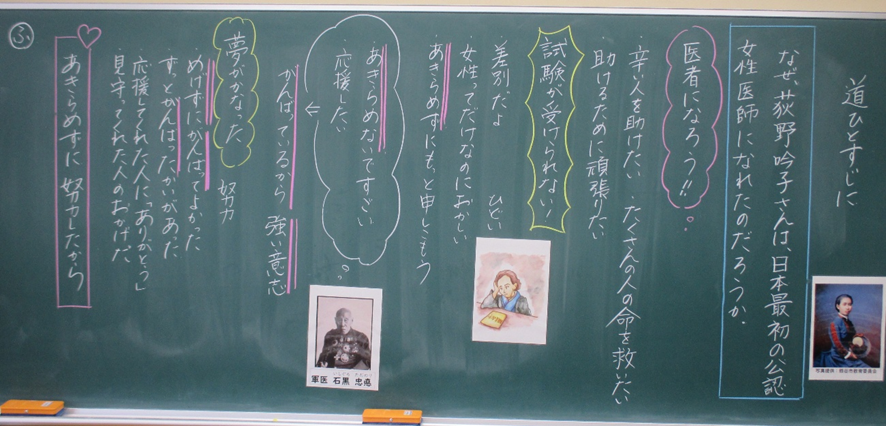 道ひとすじに
なぜ、荻野吟子さんは、日本最初の公認
女性医師になれたのだろうか。
写真提供:熊谷市教育委員会
医者になろう!!
辛い人を助けたい たくさんの人の命を救いたい
助けるために頑張りたい
試験が受けられない!
差別だよ ひどい
女性ってだけなのにおかしい
あきらめずにもっと申しこもう
あきらめないですごい
応援したい
がんばっているから 強い意志
軍医 石黒 忠悳
夢がかなった 努力
めげずにがんばってよかった
ずっとがんばったかいがあった
応援してくれた人に「ありがとう」
見守ってくれた人のおかげだ
あきらめずに努力したから
ふ